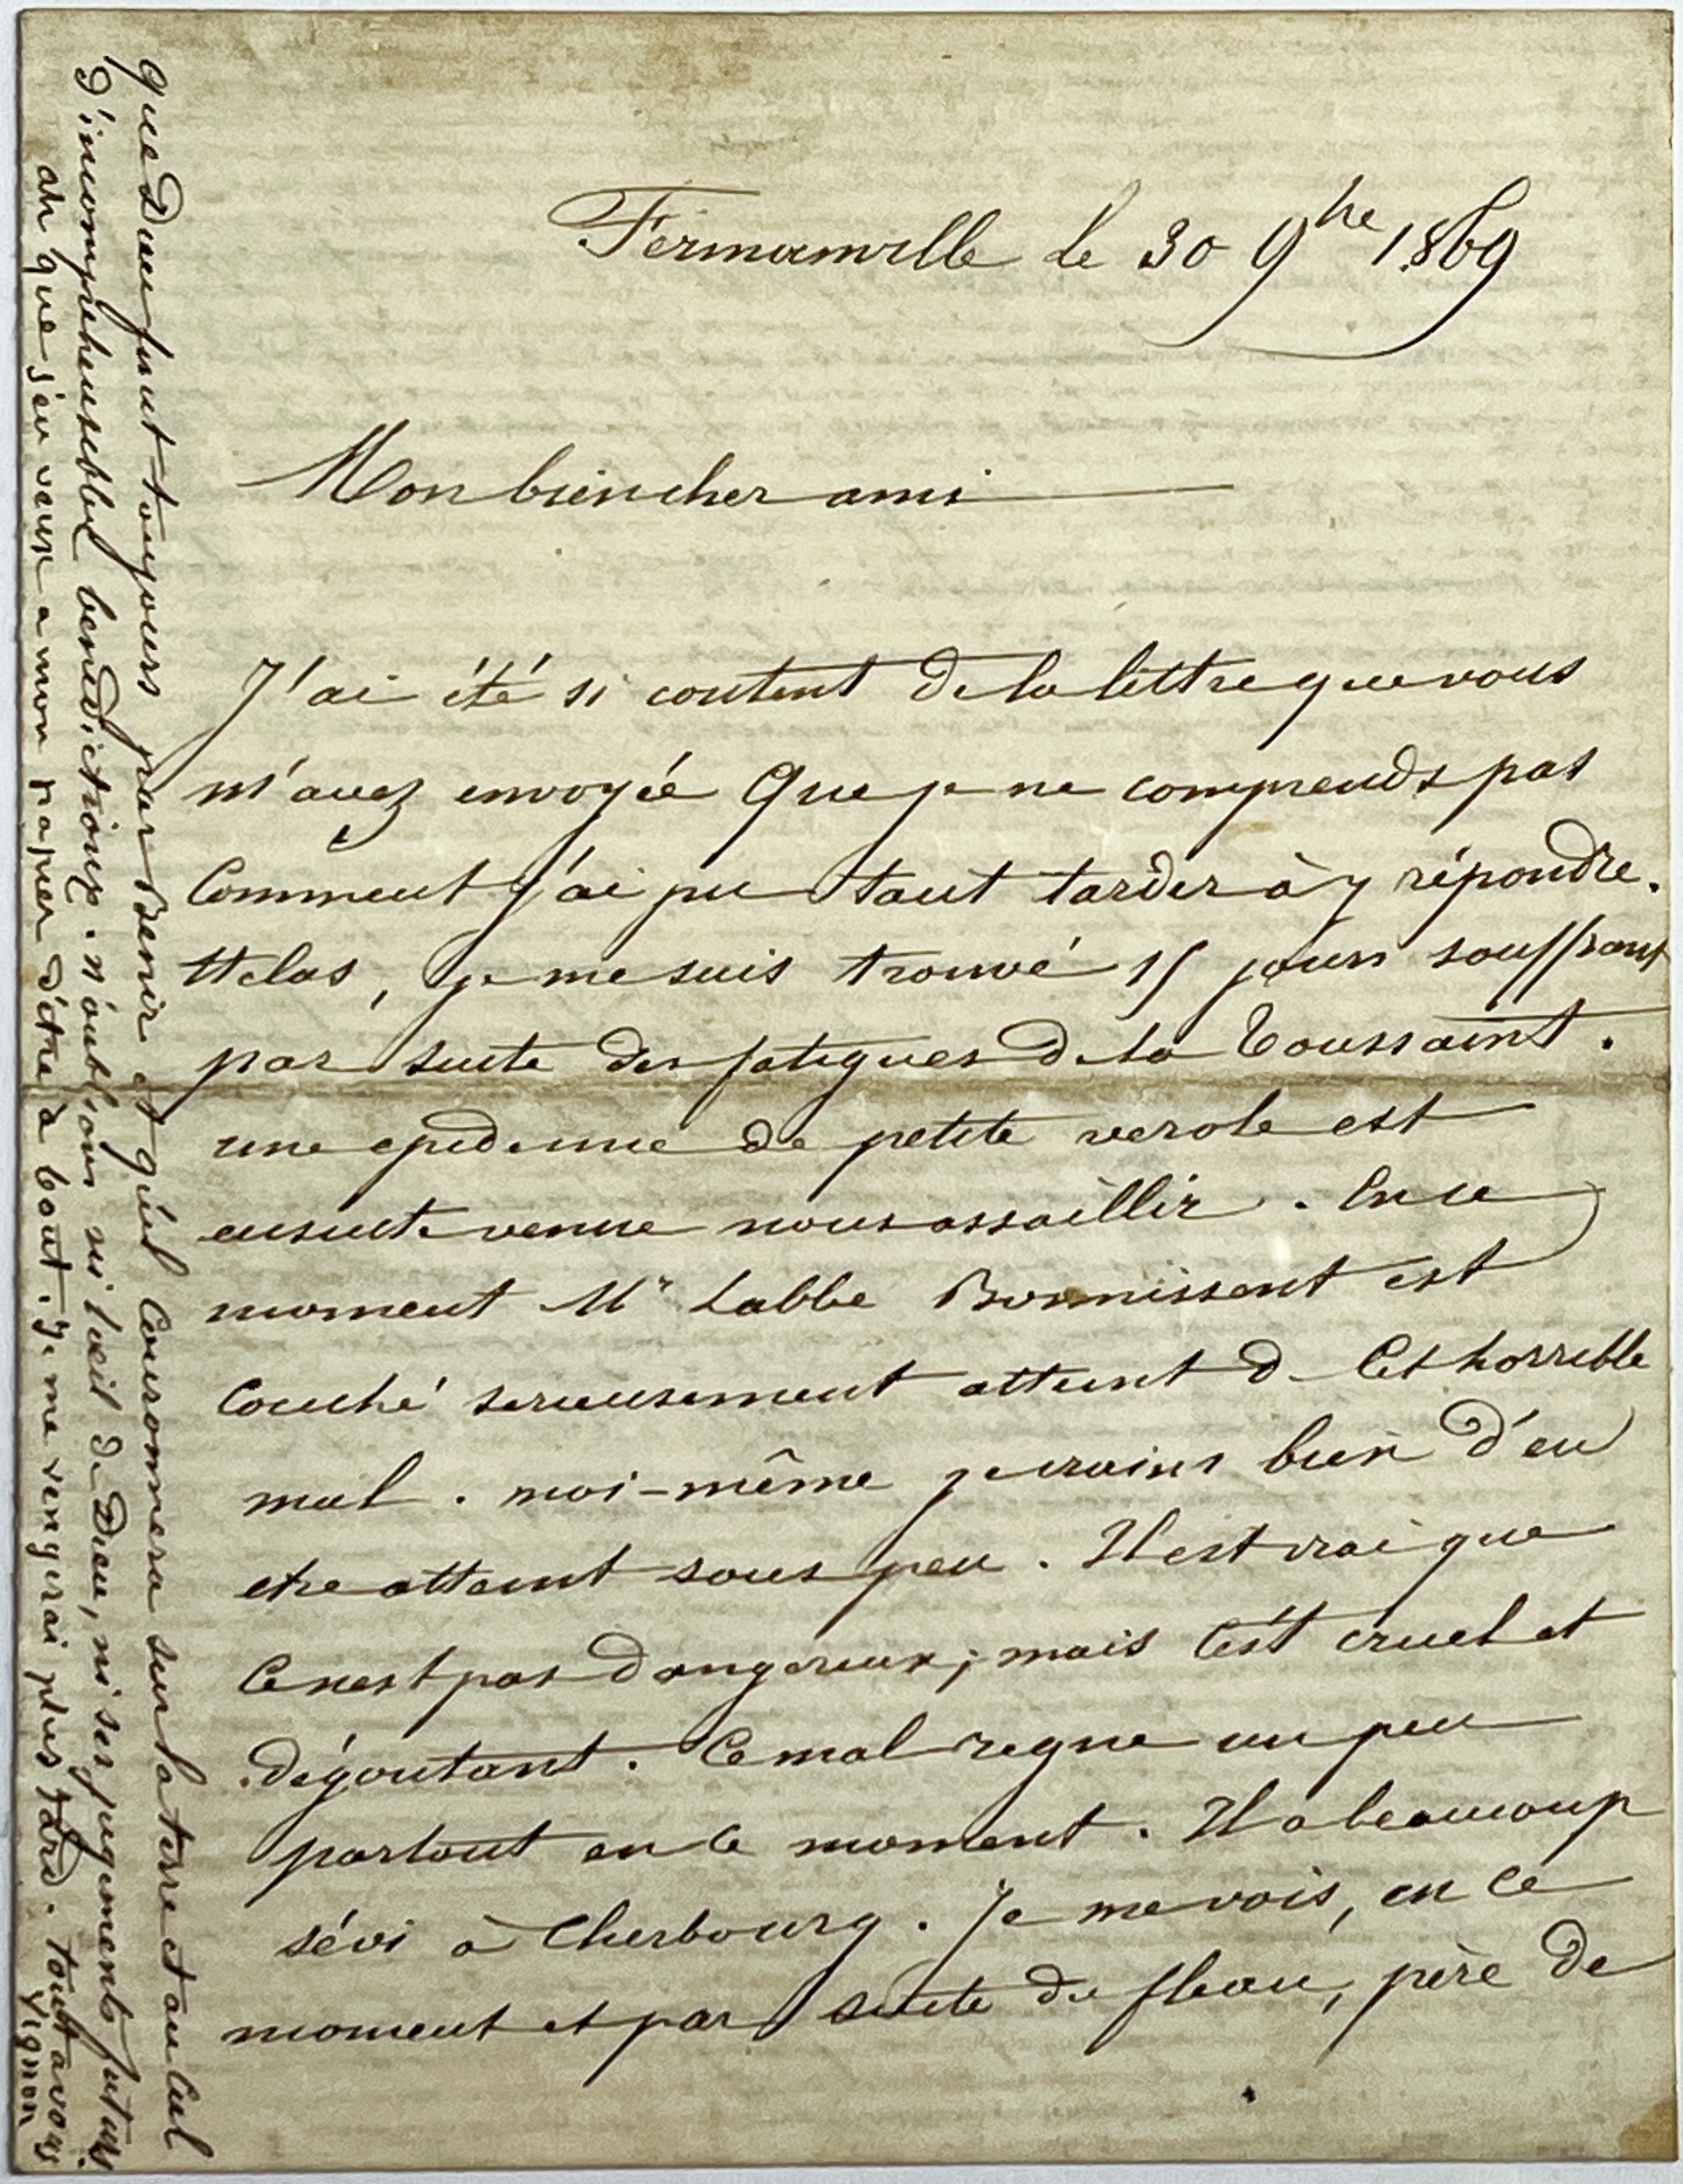 Fermanville le 30 9bre 1869
Mon bien cher ami
J'ai été si content de la lettre que vous
m'avez envoyée que je ne comprends pas
comment j'ai pu tant tarder à y répondre.
Helas, je me suis trouvé 15 jours souffrant
par suite des fatigues de la Toussaint.
une epidemie de petite verole est
ensuite venue nous assaillir. En ce
moment Mr Labbe Bonnissent est
couché serieusement atteint de cet horrible
mal. moi-même je crains bien d'en
etre atteint sous peu. Il est vrai que
ce n'est pas dangereux; mais c'est cruel et
dégoutant. Ce mal regne un peu
partout en ce moment. Il a beaucoup
sévi à Cherbourg. Je me vois, en ce
moment et par suite du fleau, père de
que Dieu finit toujours par Benir et qu'il couronnera sur la terre et au ciel
d'incomprehensibles benedictions. n'oublions ni l'oeil de Dieu, ni ses jugements futurs.
ah que j'en veux a mon papier d'etre à bout. je me vengerai plus tard. tout a vous
Vignon